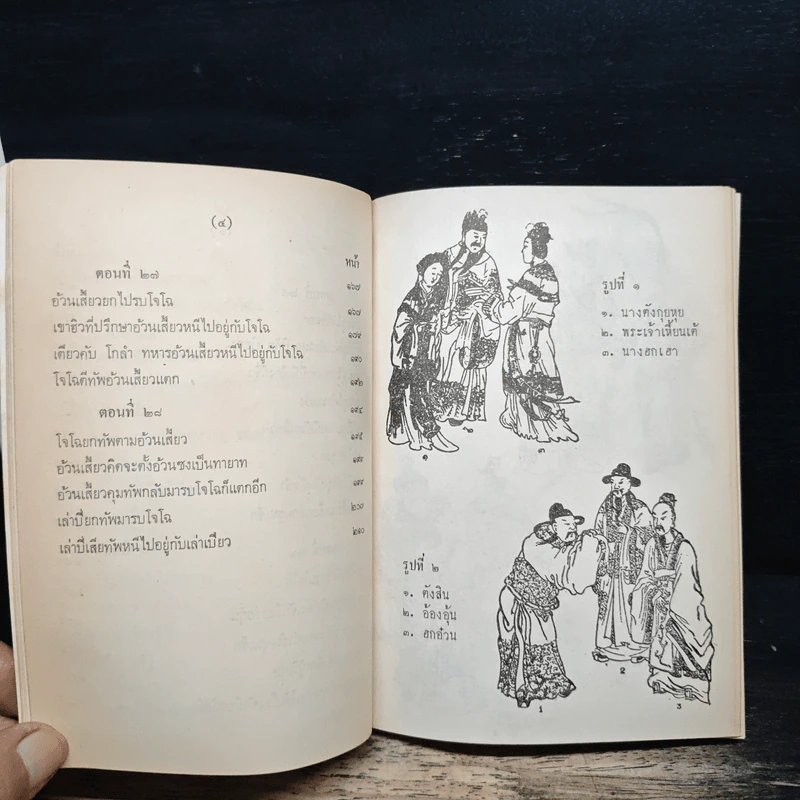 (๔)
หน้า
ตอนที่ ๒๗ ๑๖๗
อ้วนเสี้ยวยกไปรบโจโฉ ๑๖๗
เขาฮิวที่ปรึกษาอ้วนเสี้ยวหนีไปอยู่กับโจโฉ ๑๗๙
เตียวคับ โกลำ ทหารอ้วนเสี้ยวหนีไปอยู่กับโจโฉ ๑๙๐
โจโฉตีทัพอ้วนเสี้ยวแตก ๑๙๒
ตอนที่ ๒๘ ๑๙๔
โจโฉยกทัพตามอ้วนเสี้ยว ๑๙๕
อ้วนเสี้ยวคิดจะตั้งอ้วนซงเป็นทายาท ๑๙๘
อ้วนเสี้ยวคุมทัพกลับมารบโจโฉก็แตกอีก ๑๙๙
เล่าปี่ยกทัพมารบโจโฉ ๒๐๗
เล่าปี่เสียทัพหนีไปอยู่กับเล่าเปียว ๒๑๐
รูปที่ ๑
๑. นางตังกุยหุย
๒. พระเจ้าเหี้ยนเต้
๓. นางฮกเฮา
๑ ๒ ๓
รูปที่ ๒
๑. ตังสิน
๒. อ้องอุ้น
๓. ฮกอ๋วน
1 2 3